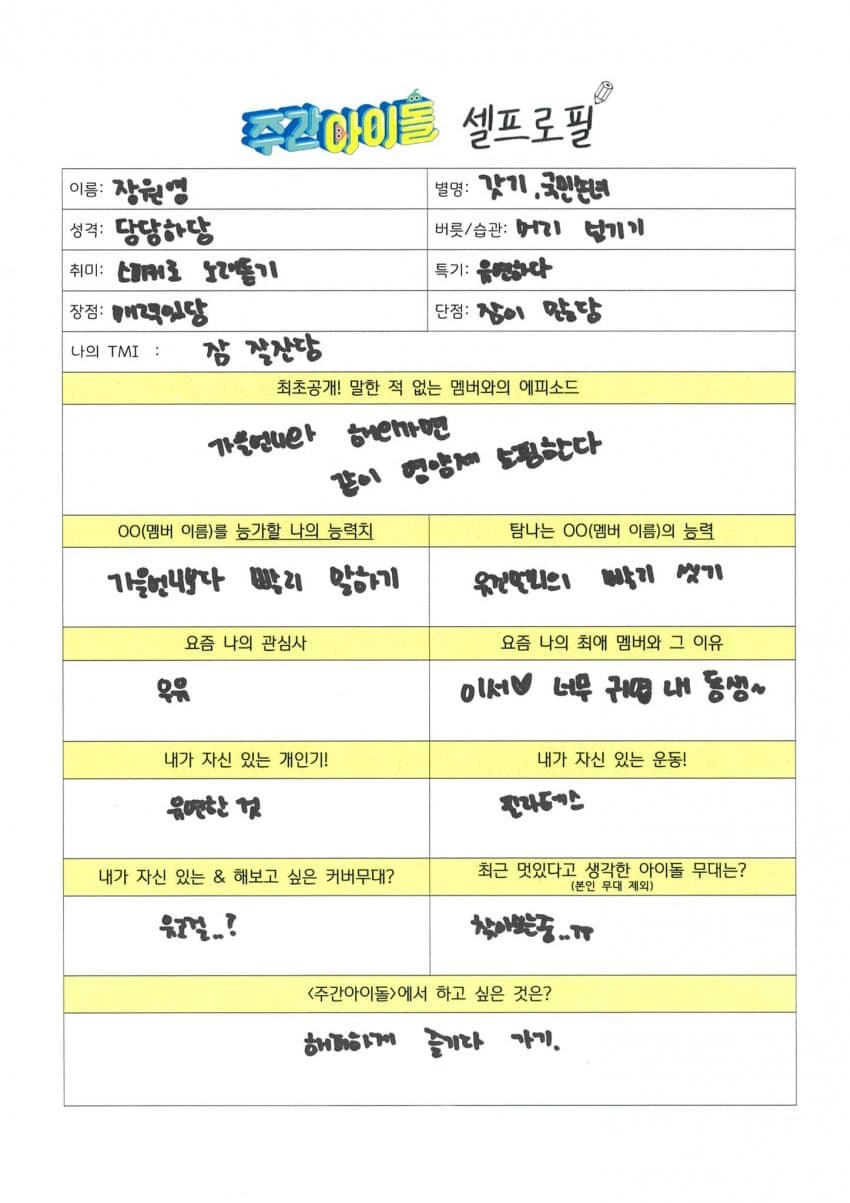 주간아이돌 셀프로필
이름: 장원영 별명: 갓기, 국민손녀
성격: 당당하당 버릇/습관: 머리 넘기기
취미: 스피커로 노래듣기 특기: 유연하다
장점: 매력있당 단점: 잠이 많당
나의 TMI : 잠 잘잔당
최초공개! 말한 적 없는 멤버와의 에피소드
가을언니와 해외가면
같이 영양제 쇼핑한다
OO(멤버 이름)를 능가할 나의 능력치 탐나는 OO(멤버 이름)의 능력
가을언니보다 빨리 말하기 유진언니의 빨리 씻기
요즘 나의 관심사 요즘 나의 최애 멤버와 그 이유
우유 이서♥ 너무 귀엽 내 동생~
내가 자신 있는 개인기! 내가 자신 있는 운동!
유연한 것 필라테스
내가 자신 있는 & 해보고 싶은 커버무대? 최근 멋있다고 생각한 아이돌 무대는?
(본인 무대 제외)
웃고걸..? 찾아보는중..ㅠㅠ
<주간아이돌>에서 하고 싶은 것은?
해피하게 즐기다 가기.